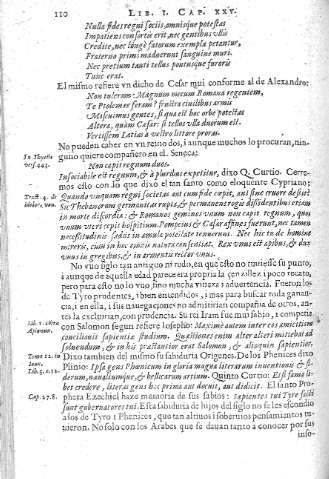 110 LIB. I. CAP. XXV.
Nulla fides regni sociis, omnisque potestas
Impatiens consortis erit, nec gentibus vllis
Credite, nec longè fatorum exempla petantur,
Fraterno primi maduerunt sanguine muri.
Nec pretium tanti tellus pontusque furoris
Tunc erat.
El mismo refiere vn dicho de Cesar mui conforme al de Alexandro:
Non tuleram Magnum mecum Romana regentem,
Te Ptolemee feram? frustra civilibus armis
Miscuimus gentes, si qua est hoc orbe potestas
Altera, quàm Cæsar: si tellus vlla duorum est.
Vertissem Latias à vestro littore proras.
No pueden caber en vn reino dos, i aunque muchos lo procuran, nin-
guno quiere compañero en el. Seneca:
Non capit regnum duos.
Insociabile est regnum, & à pluribus expetitur, dixo Q. Curtio. Cerre-
mos esto con lo que dixo el tan santo como eloquente Cypriano:
Quando vnquam regni societas aut cum fide cœpit, aut sine cruore desiit?
Sic Thebanorum germanitas rupta, & permanens rogis dissidentibus etiam
in morte discordia: & Romanos geminos vnum non capit regnum, quos
vnum vteri cepit hospitium. Pompeius & Cæsar affines fuerunt, nec tamen
necessitudinis fœdus in æmula potestate tenuerunt. Nec hoc de homine
mireris, cum in hoc omnis natura consentiat. Rex vnus est apibus, & dux
vnus in gregibus, & in armentis rector vnus.
No vuo siglo tan antiguo ni rudo, en que esto no tuviesse su punto,
i aunque de aquella edad parece era propria la sencillez i poco recato,
pero para esto no lo vuo, sino mucha viveza i advertencia. Fueron los
de Tyro prudentes, i bien entendidos, i mas para buscar toda ganan-
cia, i en ella, i sus navegaciones no admitirian compañia de otros, an-
tes la excluirian, con prudencia. Su rei Iram fue mui sabio, i competia
con Salomon segun refiere Iosepho: Maximè autem inter eos amicitiam
conciliavit sapientiæ studium. Quæstiones enim alter alteri mittebat ad
solvendum, & in his præstantior erat Salomon, & alioquin sapientior,
Dixo tambien del mismo su sabiduria Origenes. De los Phenices dixo
Plinio: Ipsa gens Phœnicum in gloria magna literarum inventionis & si-
derum, navaliumque, & bellicarum artium. Quinto Curtio: Et si fama li-
bet credere, literas gens hæc prima aut docuit, aut didicit. El santo Pro-
pheta Ezechiel haze memoria de sus sabios: Sapientes tui Tyre facti
sunt gubernatores tui. Esta sabiduria de hijos del siglo no se les escondio
a los de Tyro i Phenices, que tan altivos i sobervios pensamientos tu-
vieron. No solo con los Arabes que se davan tanto a conocer por sus
inso-
En Thyeste
vers. 444.
Lib. 1. contra
Apionem.
Lib. 5. c. 12.
Cap. 27. 8.